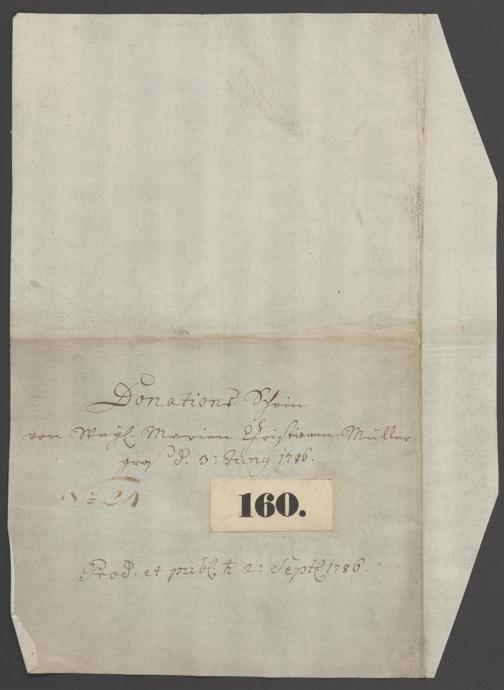 Donations Schein
von Weyl. Marien Christianen Müller
d. 3: Juny 1786.
No 21
160.
Prod: et publ. ♄ 2: Septb. 1786.